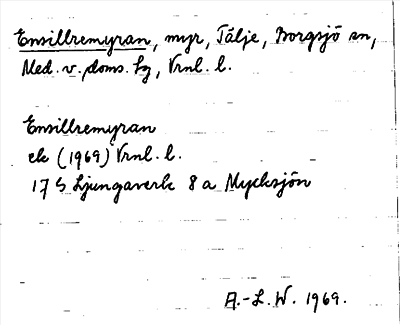 Ensillremyran, myr, Tälje, Borgsjö sn,
Med. v. doms. hg, Vrnl. l.
Ensillremyran
ek (1969) Vrnl. l.
17 G Ljungaverk 8 a Mycksjön
A.-L. W. 1969.